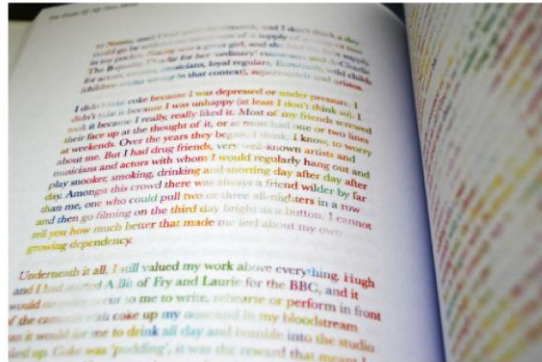 to Nonny, and I don't think a day
could go by without
in my pocket. Nonny was a great girl, and she had the
The for her 'ordinary' customers and A-Charlie
for actors, musicians, loyal regulars, wild childs
(children in that context), supermodels and
I didn't take coke because I was depressed or under pressure. I
didn't take it because I was unhappy (at least I don't think so). I
took it because I really, really liked it. Most of my friends screwed
their face up at the thought of it, or at most had one or two lines
at weekends. Over the years they began, I think, I know, to worry
about me. But I had drug friends, very well-known artists and
musicians and actors with whom I would regularly hang out and
play snooker, smoking, drinking and snorting day after day after
day. Amongst this crowd there was always a friend wilder by far
than me, one who could pull two or three all-nighters in a row
and then go filming on the third day bright as a button. I cannot
tell you how much better that made me feel about my own
growing dependency.
Underneath it all, I still valued my work above everything. Hugh
and I had started A Bit of Fry and Laurie for the BBC, and it
would occur to me to write, rehearse or perform in front
of the cameras with coke up my nose and in my bloodstream
it would for me to drink all day and into the studio
up. Coke was 'pudding', it was the reward that meant I